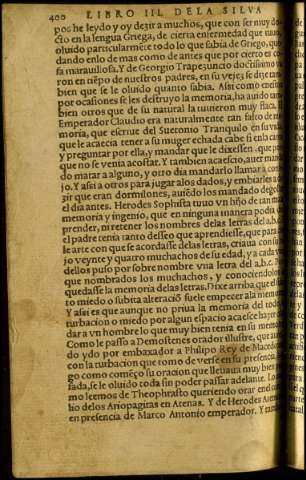 400 LIBRO III. DE LA SILVA
pos he leydo y oy dezir a muchos, que con ser muy do-
cto en la lengua Griega, de cierta enfermedad que tuuo,
oluido particularmẽte todo lo que sabia de Griego, que-
dando en lo de mas como de antes que por cierto es co-
sa marauillosa. Y de Georgio Trapezuncio doctissimo va
ron en tiẽpo de nuestros padres, en su vejez se dize tam-
bien que se le oluido quanto sabia. Assi como
por ocasiones se les destruyo la memoria, ha auido tam-
bien otros que de su natural la tuuieron muy flaca.
Emperador Claudio era naturalmente tan falto de me
moria, que escriue del Suetonio Tranquilo en su vida
que le acaecia tener a su muger echada cabe si en la cama
y preguntar por ella, y mandar que le dixessen, que por
que no se venia acostar. Y tambien acaescio, auer manda
do matar a alguno, y otro dia mandarlo llamar a
jo. Y assi a otros para jugar a los dados, y embiarles a de
zir que eran dormilones, auiẽdo los mandado degollar
el dia antes. Herodes Sophista tuuo vn hijo de tan
memoria y ingenio, que en ninguna manera podia
prender, ni retener los nombres de las letras del a.b.c.
el padre tenia tanto desseo que aprendiesse, que para
le arte con que se acordasse de las letras, criaua con su hi
jo veynte y quatro muchachos de su edad, y a cada vno
dellos puso por sobre nombre vna letra del a.b.c. Para
que nombrados los muchachos, y conociendolos
quedasse la memoria de las letras. Dixe arriba, que el
to miedo o subita alteraciõ suele empecer a la memoria
Y assi es que aunque no priua la memoria del todo
turbacion o miedo por algun espacio acaesce hazer
dar a vn hombre lo que muy bien tenia en su memoria
Como le passo a Demostenes orador illustre, que auien-
do ydo por embaxador a Philipo Rey de Macedonia
con la turbacion que tomo de verse en su presencia,
go como comẽço su oracion que lleuaua muy bien
sada, se le oluido toda sin poder passar adelante. Lo
mo leemos de Theophrasto queriendo orar en el
lio delos Ariopagitas en Atenas. Y de Herodes Atenien
en presencia de Marco Antonio emperador. Y tambien